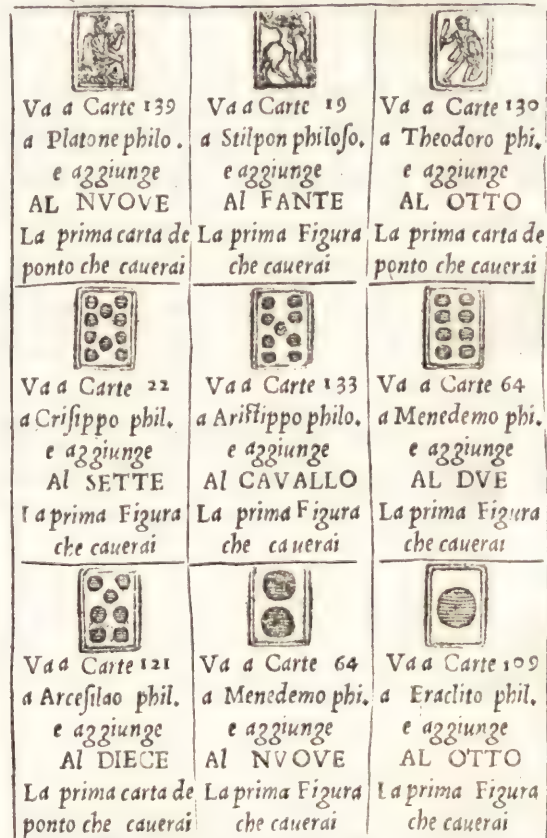 Va a Carte 139
a Platone philo.
e aggiunge
AL NVOVE
La prima carta de
ponto che cauerai
Va a Carte 19
a Stilpon philoſo.
e aggiunge
Al FANTE
La prima Figura
che cauerai
Va a Carte 130
a Theodoro phi.
e aggiunge
AL OTTO
La prima carta de
ponto che cauerai
Va a Carte 22
a Criſippo phil.
e aggiunge
Al SETTE
La prima Figura
che cauerai
Va a Carte 133
a Ariſtippo philo.
e aggiunge
Al CAVALLO
La prima Figura
che cauerai
Va a Carte 64
a Menedemo phi.
e aggiunge
AL DVE
La prima Figura
che cauerai
Va a Carte 121
a Arceſilao phil.
e aggiunge
Al DIECE
La prima carta de
ponto che cauerai
Va a Carte 64
a Menedemo phi.
e aggiunge
Al NVOVE
La prima Figura
che cauerai
Va a Carte 109
a Eraclito phil.
e aggiunge
AL OTTO
La prima Figura
che cauerai